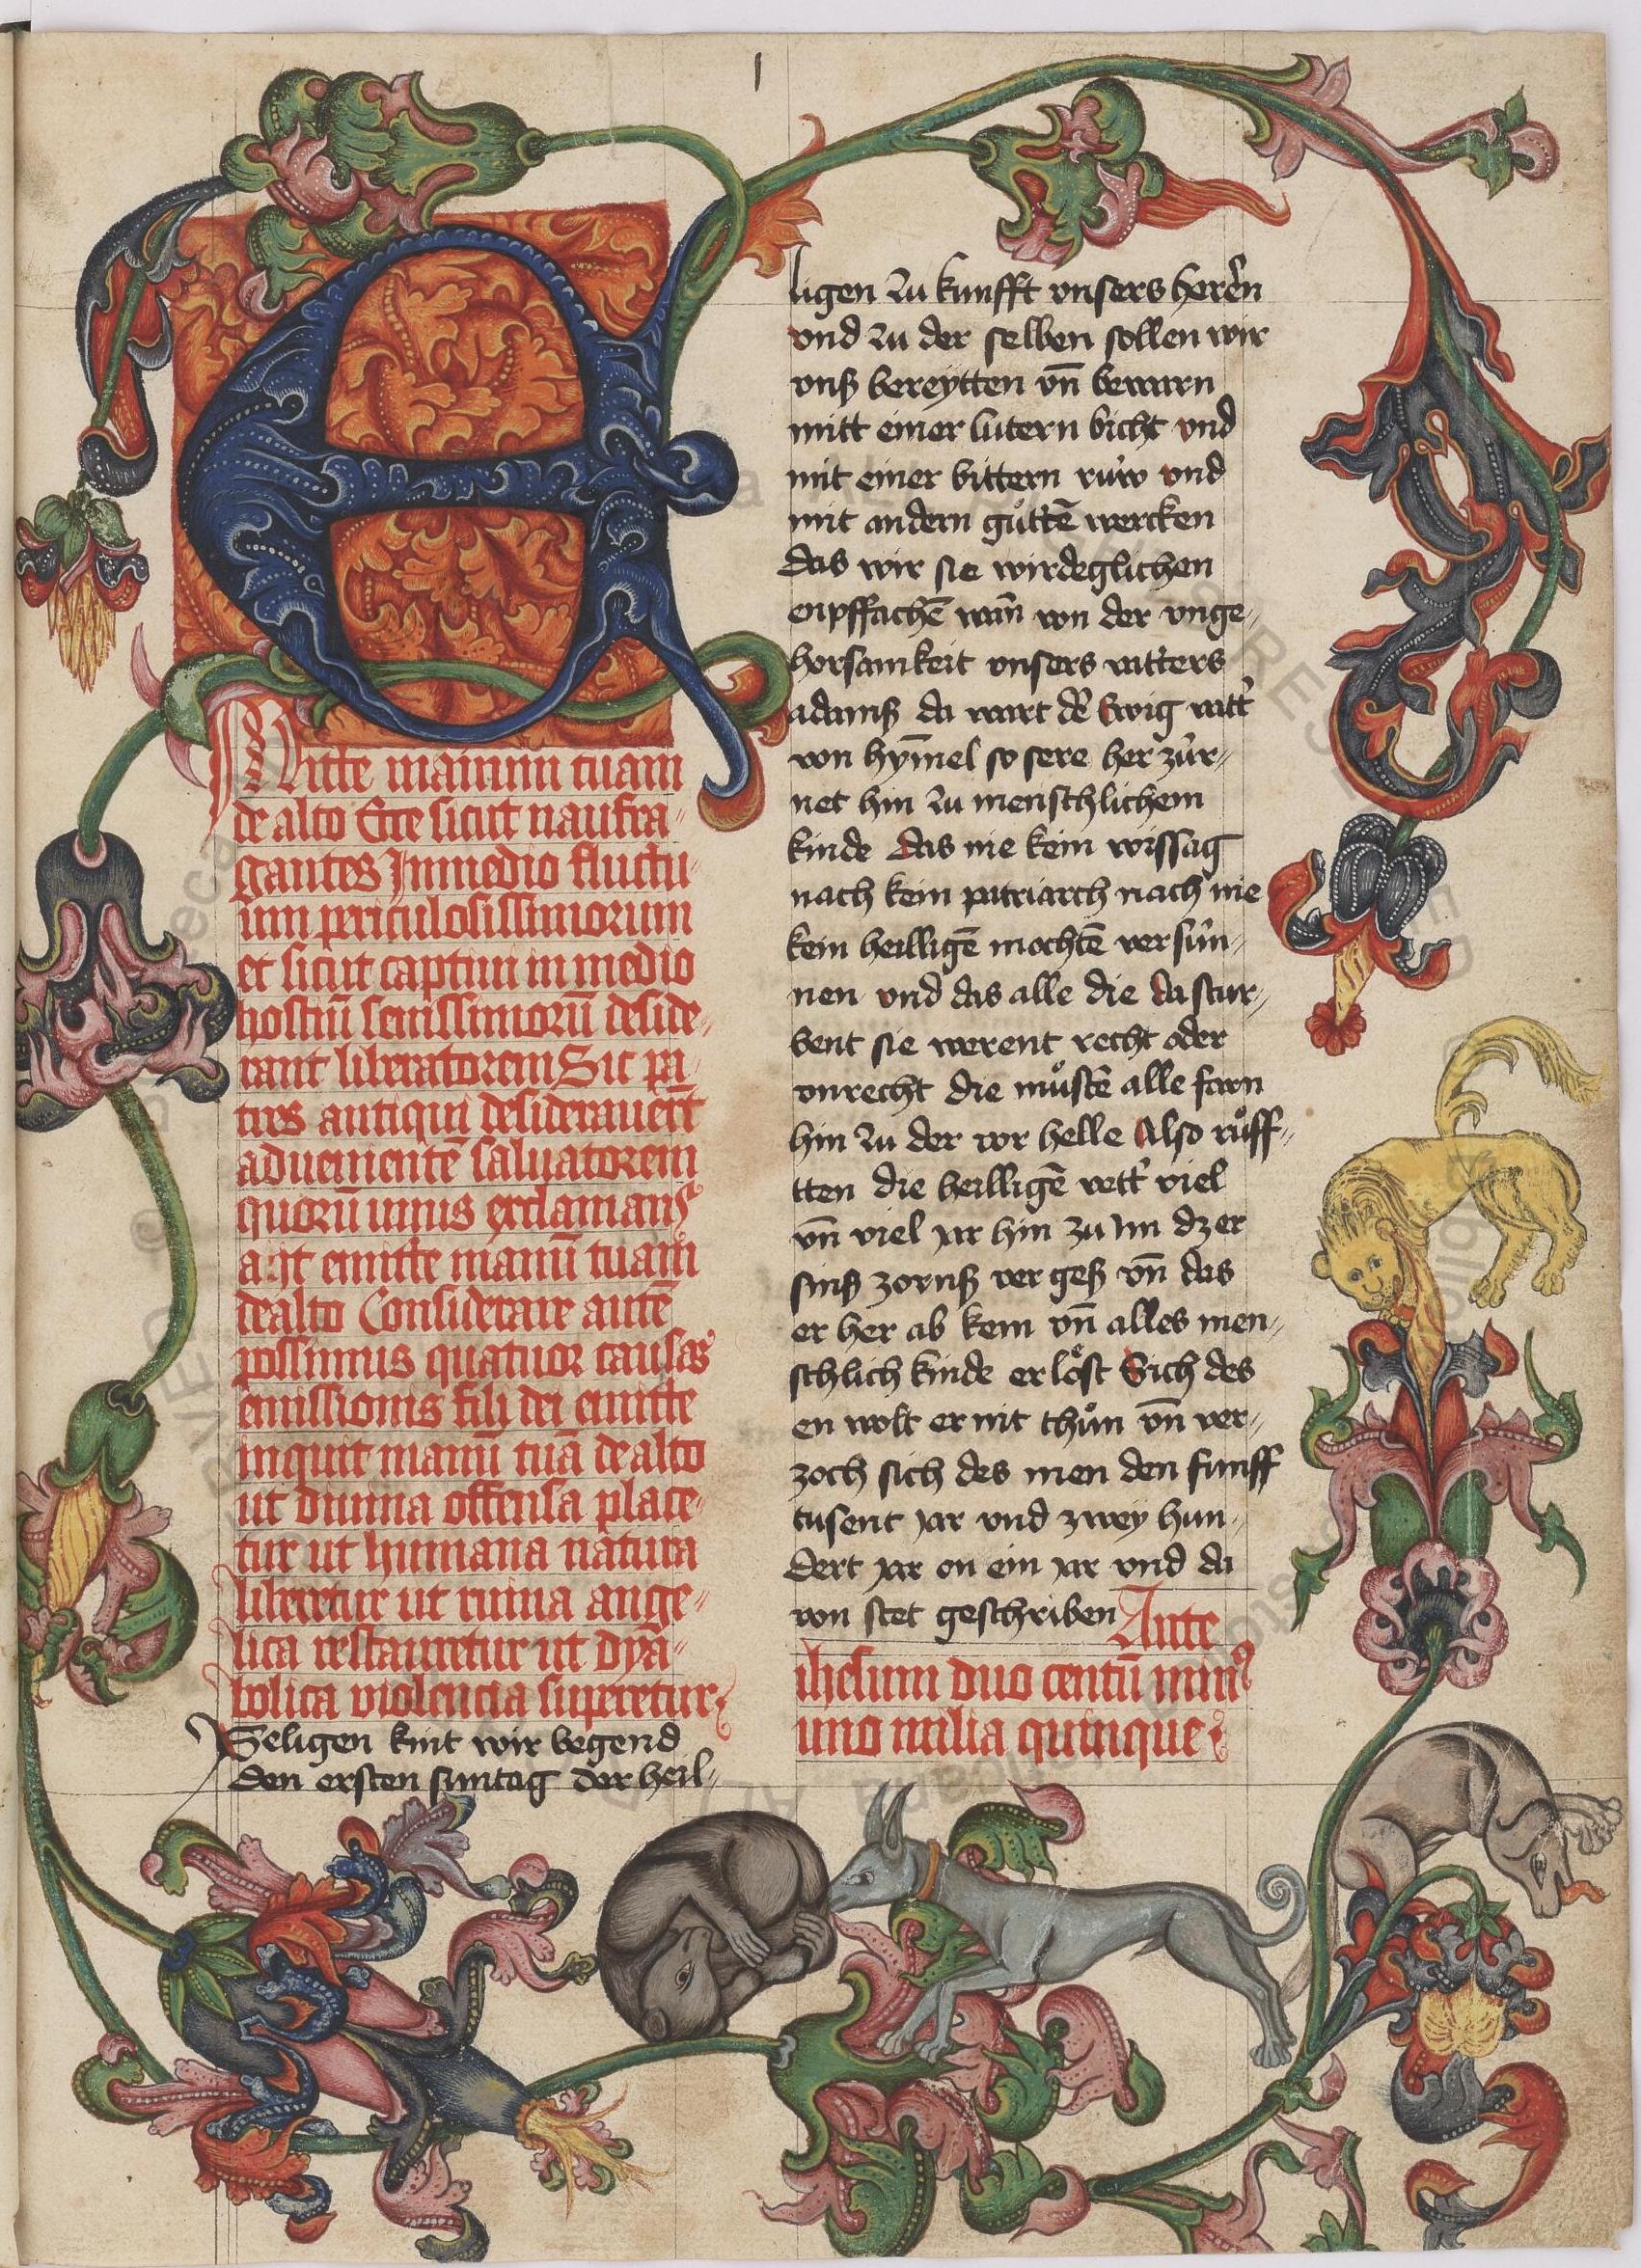 1
E
Mitte manum tuam
de alto Ecce sicut naufra-
gantes In medio fluctu-
um periculosissimorum
et sicut captiui in medio
hostiū seuissimorū deside-
rant liberatorem Sic pa-
tres antiqui desiderauerūt
aduenientē saluatorem
quorū unus exclamans
ait emitte manū tuam
de alto Considerare autē
possumus quatuor causas
emissionis filij dei emitte
inquit manū tuā de alto
ut diuina offensa place-
tur ut humana natura
liberetur ut ruina ange-
lica restauretur ut dya-
bolica violencia superetur
Seligen kint wir begend
den ersten suntag der heil-
ligen zu kunfft vnsers herēn
vnd zu der selben sollen wir
vnß bereytten vn̄ bewarn
mitt einer lutern bicht vnd
mit einer bittern rüw vnd
mit andern gůttē wercken
das wir sie wirdeglichen
enpffachē wan̄ von der vnge-
horsamkeit vnsers vatters
adamß da wart dē Ewig vatt'
von hȳmel so sere her zür-
net hin zu menschlichem
kinde das nie kein wissag
nach kein patriarch nach nie
kein heilligē mochtē versün-
nen vnd das alle die da stur-
bent sie werent recht oder
vnrecht die můstē alle farn
hin zu der vor helle Also růff-
tten die heilligē vett' viel
vn̄ viel jar hin zu Im dz er
sinß zornß ver geß vn̄ das
er her ab kem vn̄ alles men-
schlich kinde erlöst Sich des
en wolt er nit thůn vn̄ ver-
zoch sich des men den funff
tusent jar vnd zwey hun-
dert jar on ein jar vnd da
von stet geschriben Ante
ihesum duo centū minꝰ
uno milia quinque